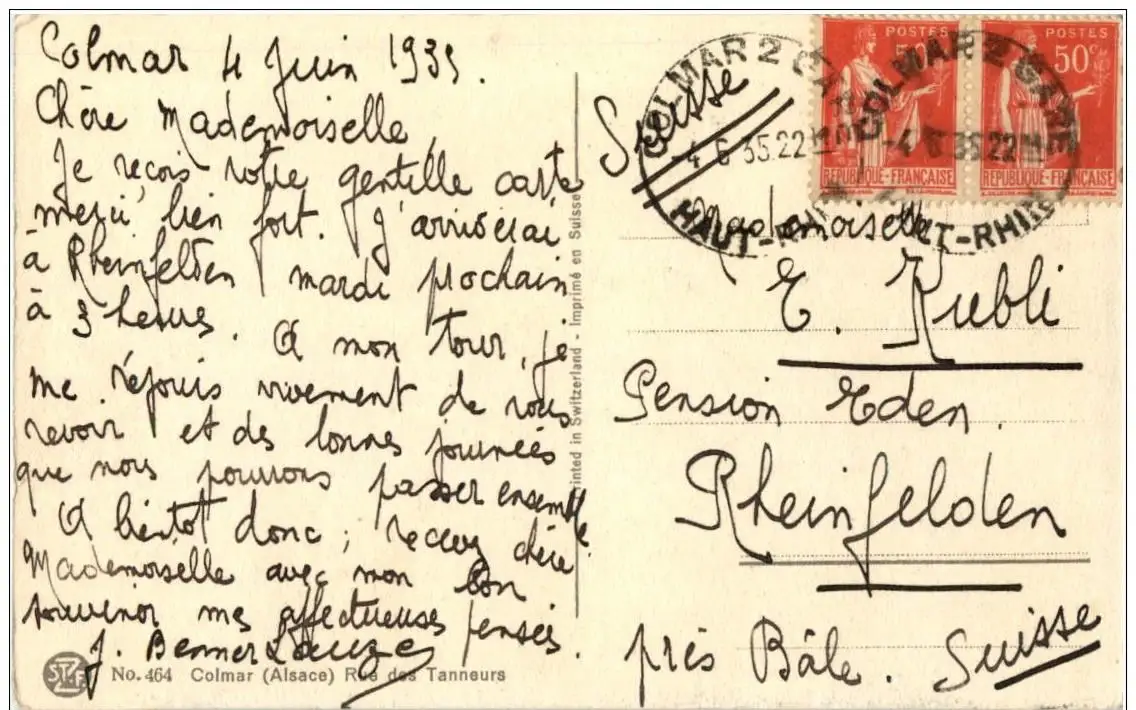 Colmar 4 Juin 1935.
Chère Mademoiselle,
Je reçois votre gentille carte
merci bien fort. J'arriverai
à Rheinfelden mardi prochain
à 3 heures. A mon tour, je
me réjouis vivement de vous
revoir et des bonnes journées
que nous pourrons passer ensemble.
A bientôt donc ; recevez chère
Mademoiselle avec mon bon
souvenir mes affectueuses pensées.
J. Benner Lauze
No. 464 Colmar (Alsace) Rue des Tanneurs
Printed in Switzerland - Imprimé en Suisse
Suisse
COLMAR 2 GARE
4 6 35.22H
HAUT-RHIN
COLMAR 2 GARE
-4 6 35 22H
HAUT-RHIN
POSTES
50c
REPUBLIQUE-FRANÇAISE
POSTES
50c
REPUBLIQUE-FRANÇAISE
Mademoiselle
E. Kubli
Pension Eden.
Rheinfelden
près Bâle. Suisse